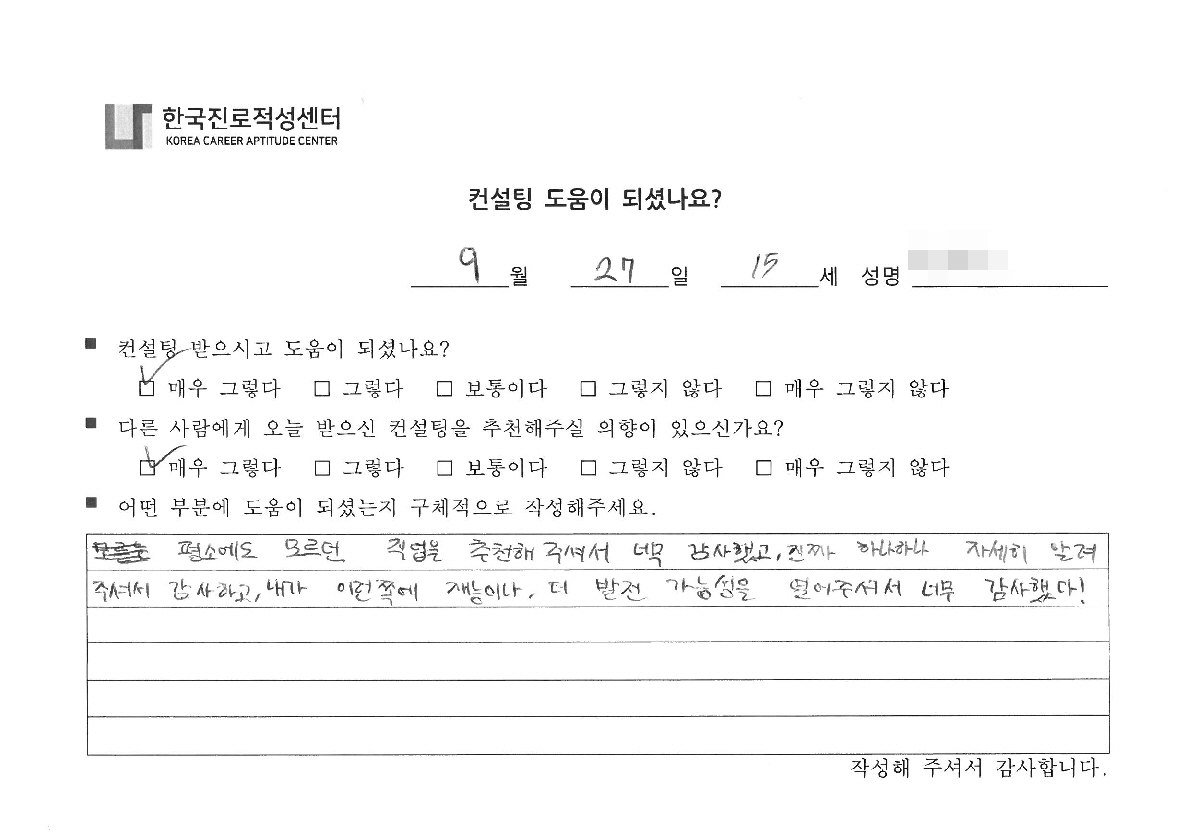 한국진로적성센터
KOREA CAREER APTITUDE CENTER
컨설팅 도움이 되셨나요?
9 월 27 일 15 세 성명
■ 컨설팅 받으시고 도움이 되셨나요?
☑ 매우 그렇다 □ 그렇다 □ 보통이다 □ 그렇지 않다 □ 매우 그렇지 않다
■ 다른 사람에게 오늘 받으신 컨설팅을 추천해주실 의향이 있으신가요?
☑ 매우 그렇다 □ 그렇다 □ 보통이다 □ 그렇지 않다 □ 매우 그렇지 않다
■ 어떤 부분에 도움이 되셨는지 구체적으로 작성해주세요.
평소에도 모르던 직업을 추천해 주셔서 너무 감사했고, 진짜 하나하나 자세히 알려
주셔서 감사하고, 내가 이런쪽에 재능이나, 더 발전 가능성을 열어주셔서 너무 감사했다!
작성해 주셔서 감사합니다.